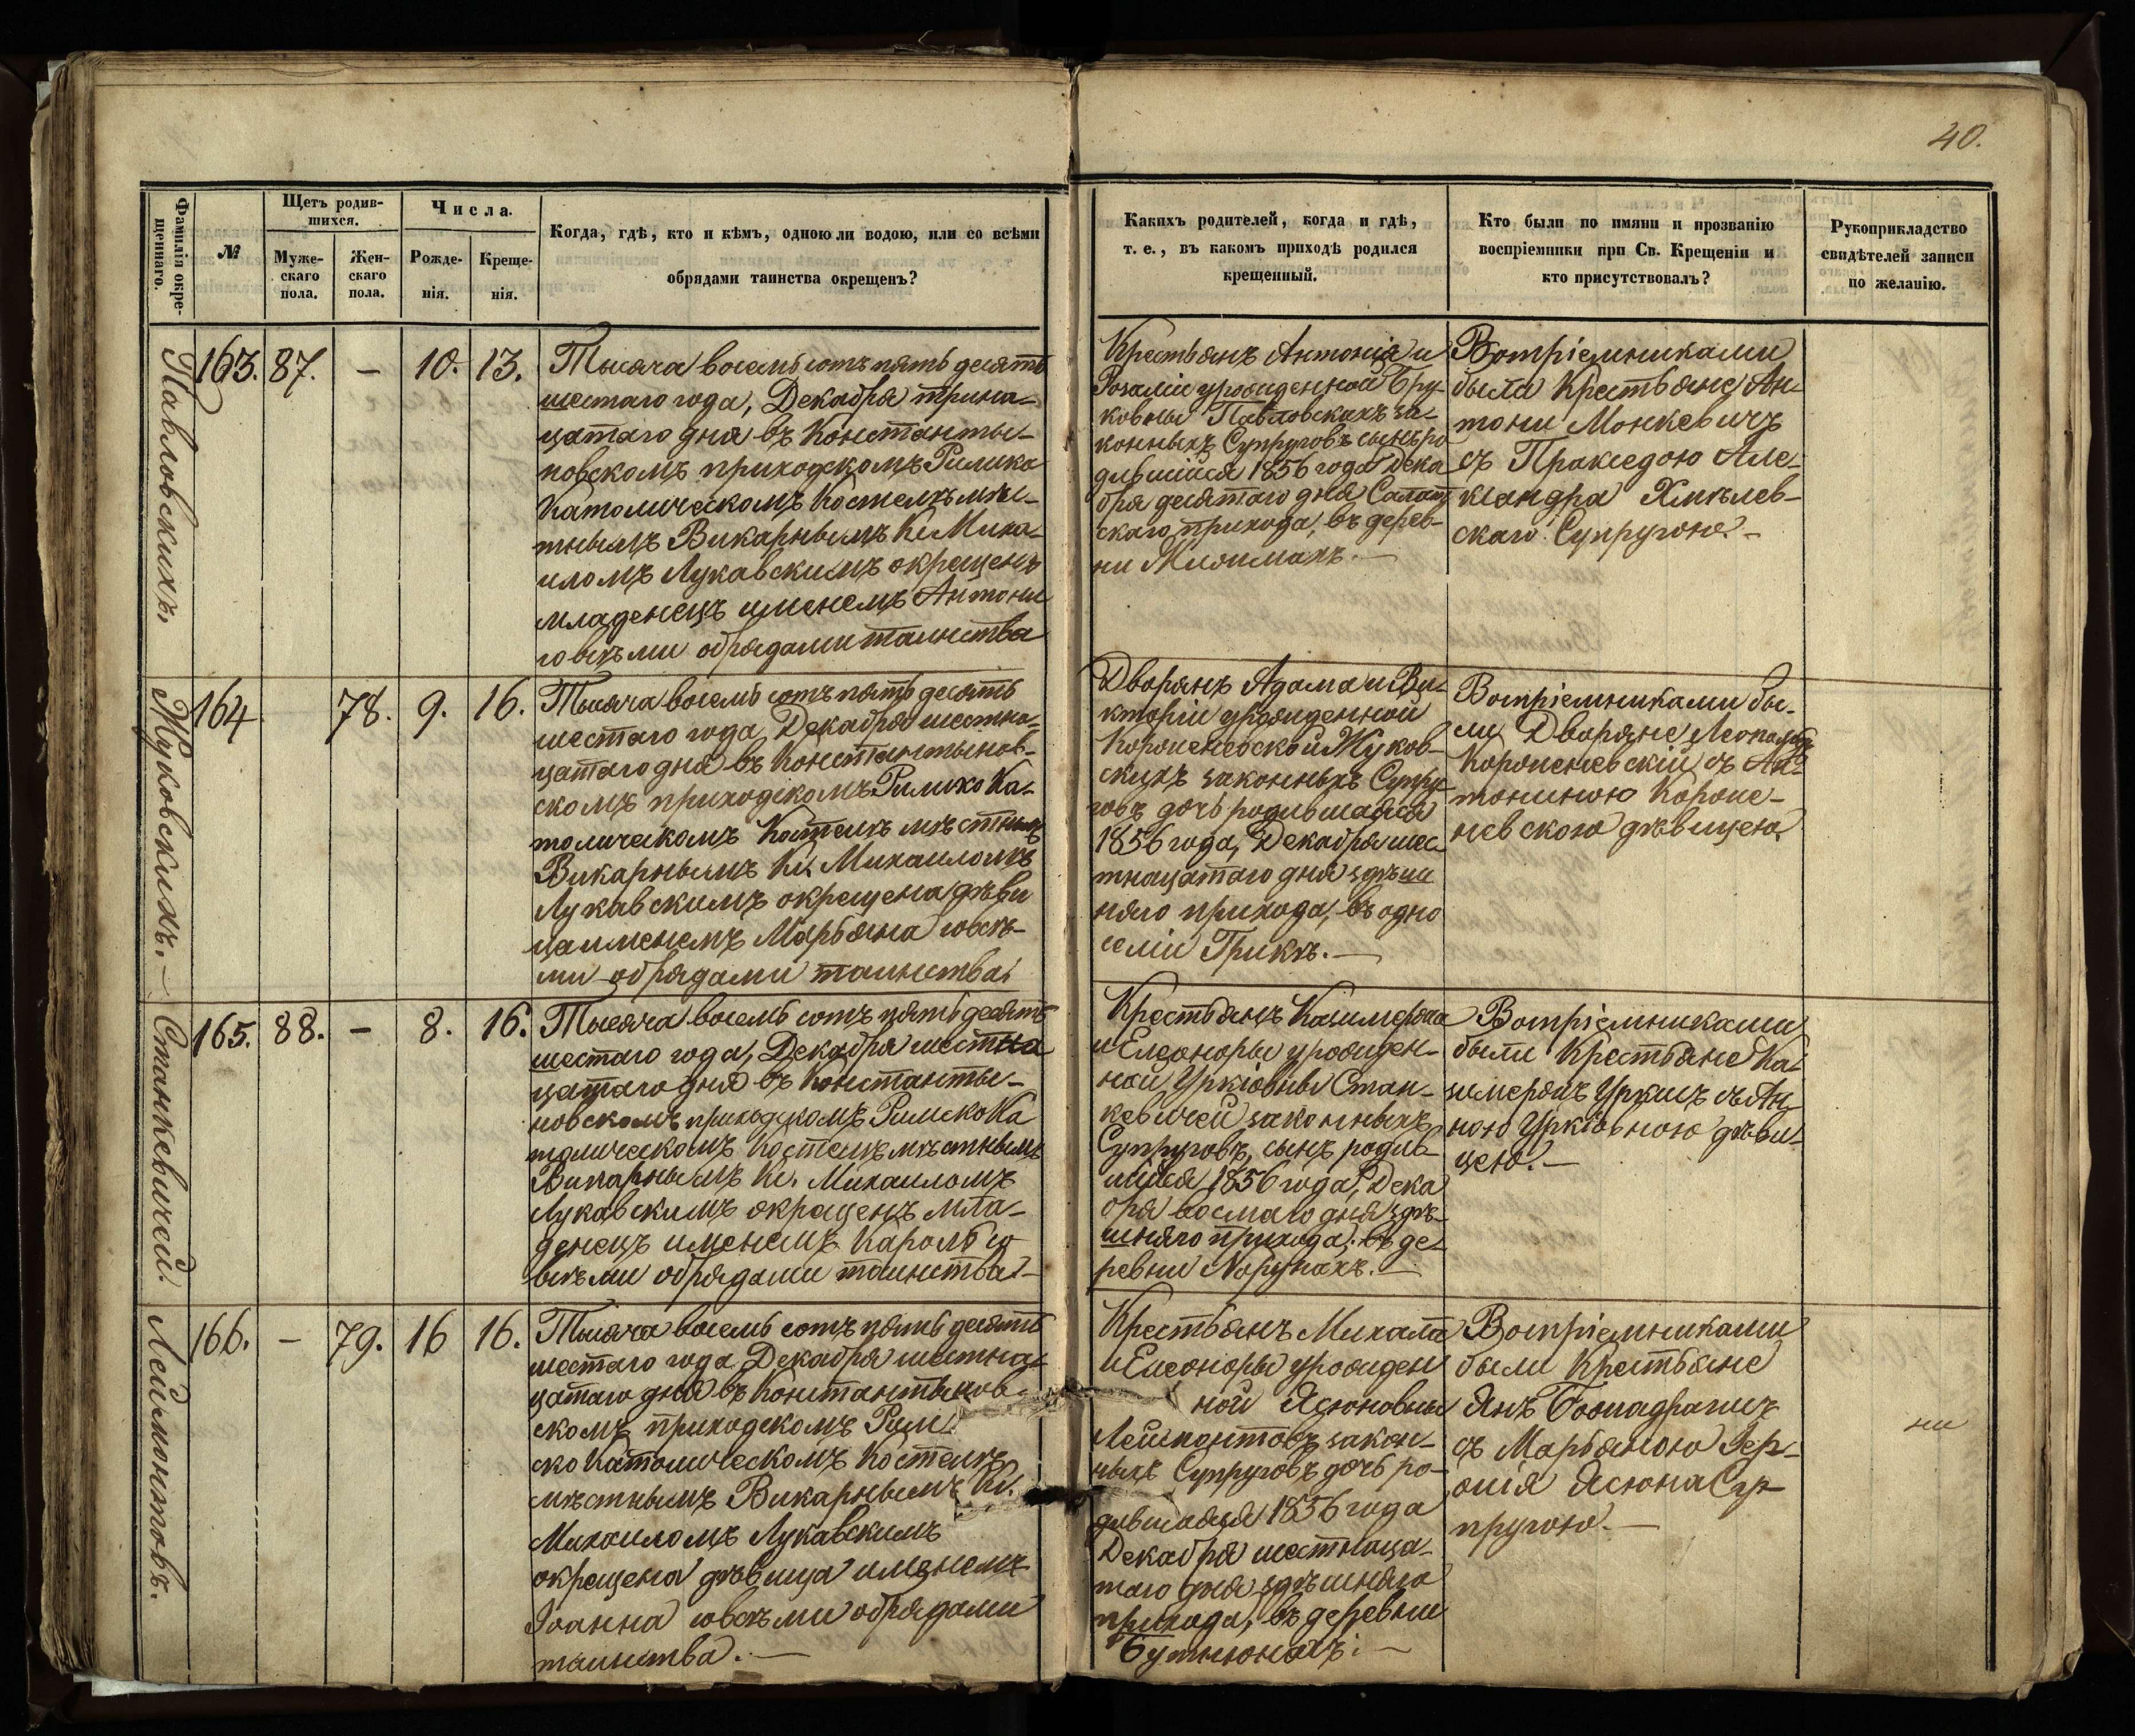 40.
Фамилія окре-
щеннаго.
№
Щетъ родив-
шихся.
Муже-
скаго
пола.
Жен-
скаго
пола.
Числа.
Рожде-
нія.
Креще-
нія.
Когда, гдѣ, кто и кѣмъ, одною ли водою, или со всѣми
обрядами таинства окрещенъ?
Какихъ родителей, когда и гдѣ,
т. е., въ какомъ приходѣ родился
крещенный.
Кто были по имяни и прозванію
воспріемники при Св. Крещеніи и
кто присутствовалъ?
Рукоприкладство
свидѣтелей записи
по желанію.
Павловскихъ.
163.
87.
–
10.
13.
Тысяча восемь сотъ пять десятъ
шестаго года, Декабря трина-
цатаго дня въ Константы-
новскомъ приходскомъ Римско
Католическомъ Костелѣ мѣс-
тнымъ Викарнымъ Кс. Миха-
иломъ Лукавскимъ окрещенъ
младенецъ именемъ Антони
со всѣми обрядами таинства
Крестьянъ Антонія и
Розаліи урожденной Бру-
ковны Павловскихъ за-
конныхъ Супруговъ сынъ ро
дившійся 1856 года Дека
бря десятаго дня
скаго прихода, въ дерев-
ни
Вотпріемниками
были Крестьяне Ан-
тони Монкевичъ
съ Праксedою Але-
ксандра Хмѣлев-
скаго Супругою. –
Жуковскихъ. –
164
78.
9.
16.
Тысяча восемь сотъ пять десятъ
шестаго года, Декабря шестна-
цатаго дня въ Константынов-
скомъ приходскомъ Римско Ка-
толическомъ Костелѣ мѣстнымъ
Викарнымъ Кс. Михаиломъ
Лукавскимъ окрещена дѣви
ца именемъ Марьяна со всѣ-
ми обрядами таинства.
Дворянъ Адама и Ви-
кторіи урожденной
Короневской Жуков-
скихъ законныхъ Супру-
говъ дочь родившаяся
1856 года, Декабря шес
тнацатаго дня здѣш
няго прихода, въ одно
селіи Грикѣ. –
Вотпріемниками бы-
ли Дворяне Леопольдъ
съ Ан-
тониною Короне-
невскою дѣвицею
Станкевичей.
165.
88.
–
8.
16.
Тысяча восемь сотъ пять десятъ
шестаго года, Декабря шестна
цатаго дня въ Константы-
новскомъ приходскомъ Римско Ка
толическомъ Костелѣ мѣстнымъ
Викарнымъ Кс. Михаиломъ
Лукавскимъ окрещенъ мла-
денецъ именемъ Кароль со
всѣми обрядами таинства. –
Крестьянъ Казимержа
и Елеоноры урожден-
ной Уркіовны Стан-
кевичей законныхъ
Супруговъ, сынъ родив-
шійся 1856 года, Дека
бря восмаго дня здѣ-
шняго прихода, въ де-
ревни Норунахъ. –
Вотпріемниками
были Крестьяне Ка-
зимержъ Уркись съ Ан-
ною Уркіовною дѣви-
цею. –
Леймонтовъ.
166.
–
79.
16
16.
Тысяча восемь сотъ пять десятъ
шестаго года Декабря шестна-
цатаго дня въ Константынов-
скомъ приходскомъ Рим
ско Католическомъ Костелѣ
мѣстнымъ Викарнымъ Кс.
Михаиломъ Лукавскимъ
окрещена дѣвица именемъ
Іоанна со всѣми обрядами
таинства. –
Крестьянъ Михала
и Елеоноры урожден
ной Ясюновны
Леймонтовъ закон-
ныхъ Супруговъ дочь ро-
дившаяся 1856 года
Декабря шестнаца-
таго дня здѣшняго
прихода, въ деревни
Бутнюнахъ. –
Вотпріемниками
были Крестьяне
Янъ
съ Марьяною
Ясюна Су-
пругою. –